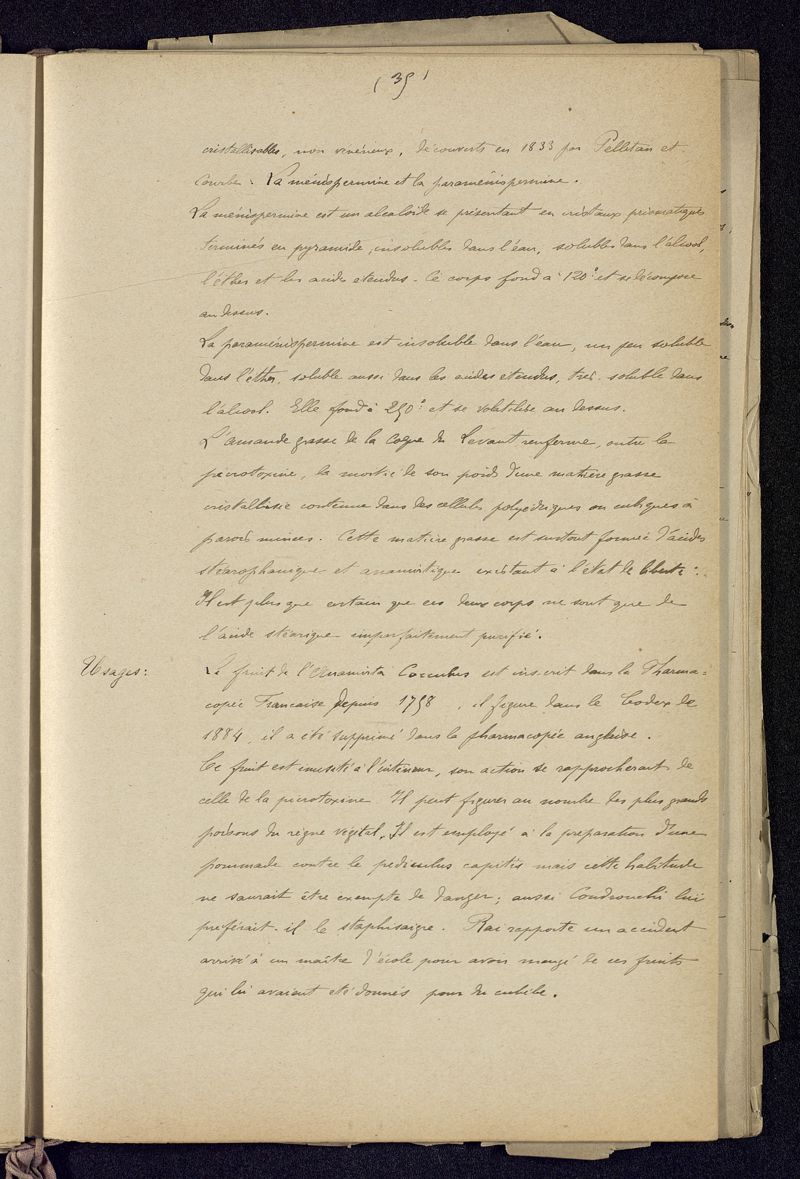 (35)
cristallisables, non vénéneux, découverts en 1833 par Pelletan et
Courbe : La ménispermine et la paraménispermine.
La ménispermine est un alcaloïde se présentant en cristaux prismatiques
terminés en pyramide, insolubles dans l'eau, solubles dans l'alcool,
l'éther et les acides étendus. Ce corps fond à 120° et se décompose
au dessus.
La paraménispermine est insoluble dans l'eau, un peu soluble
dans l'éther, soluble aussi dans les acides étendus, très soluble dans
l'alcool. Elle fond à 250° et se volatilise au dessus.
L'amande grasse de la Coque du Levant renferme, outre la
picrotoxine, la moitié de son poids d'une matière grasse
cristallisée contenue dans des cellules polyédriques ou cubiques à
parois minces. Cette matière grasse est surtout formée d'acides
stéarophanique et anamirtique existant à l'état de liberté.
Il est plus que certain que ces deux corps ne sont que de
l'acide stéarique imparfaitement purifié.
Usages : Le fruit de l'Anamirta Cocculus est inscrit dans la Pharma-
copée Française depuis 1758, il figure dans le Codex de
1884, il a été supprimé dans la pharmacopée anglaise.
Ce fruit est inusité à l'intérieur, son action se rapprocherait de
celle de la picrotoxine. Il peut figurer au nombre des plus grands
poisons du règne végétal. Il est employé à la préparation d'une
pommade contre le pediculus capitis mais cette habitude
ne saurait être exempte de danger; aussi lui
préférait-il le staphisaigre. Rai rapporte un accident
arrivé à un maître d'école pour avoir mangé de ces fruits
qui lui avaient été donnés pour du cubèbe.